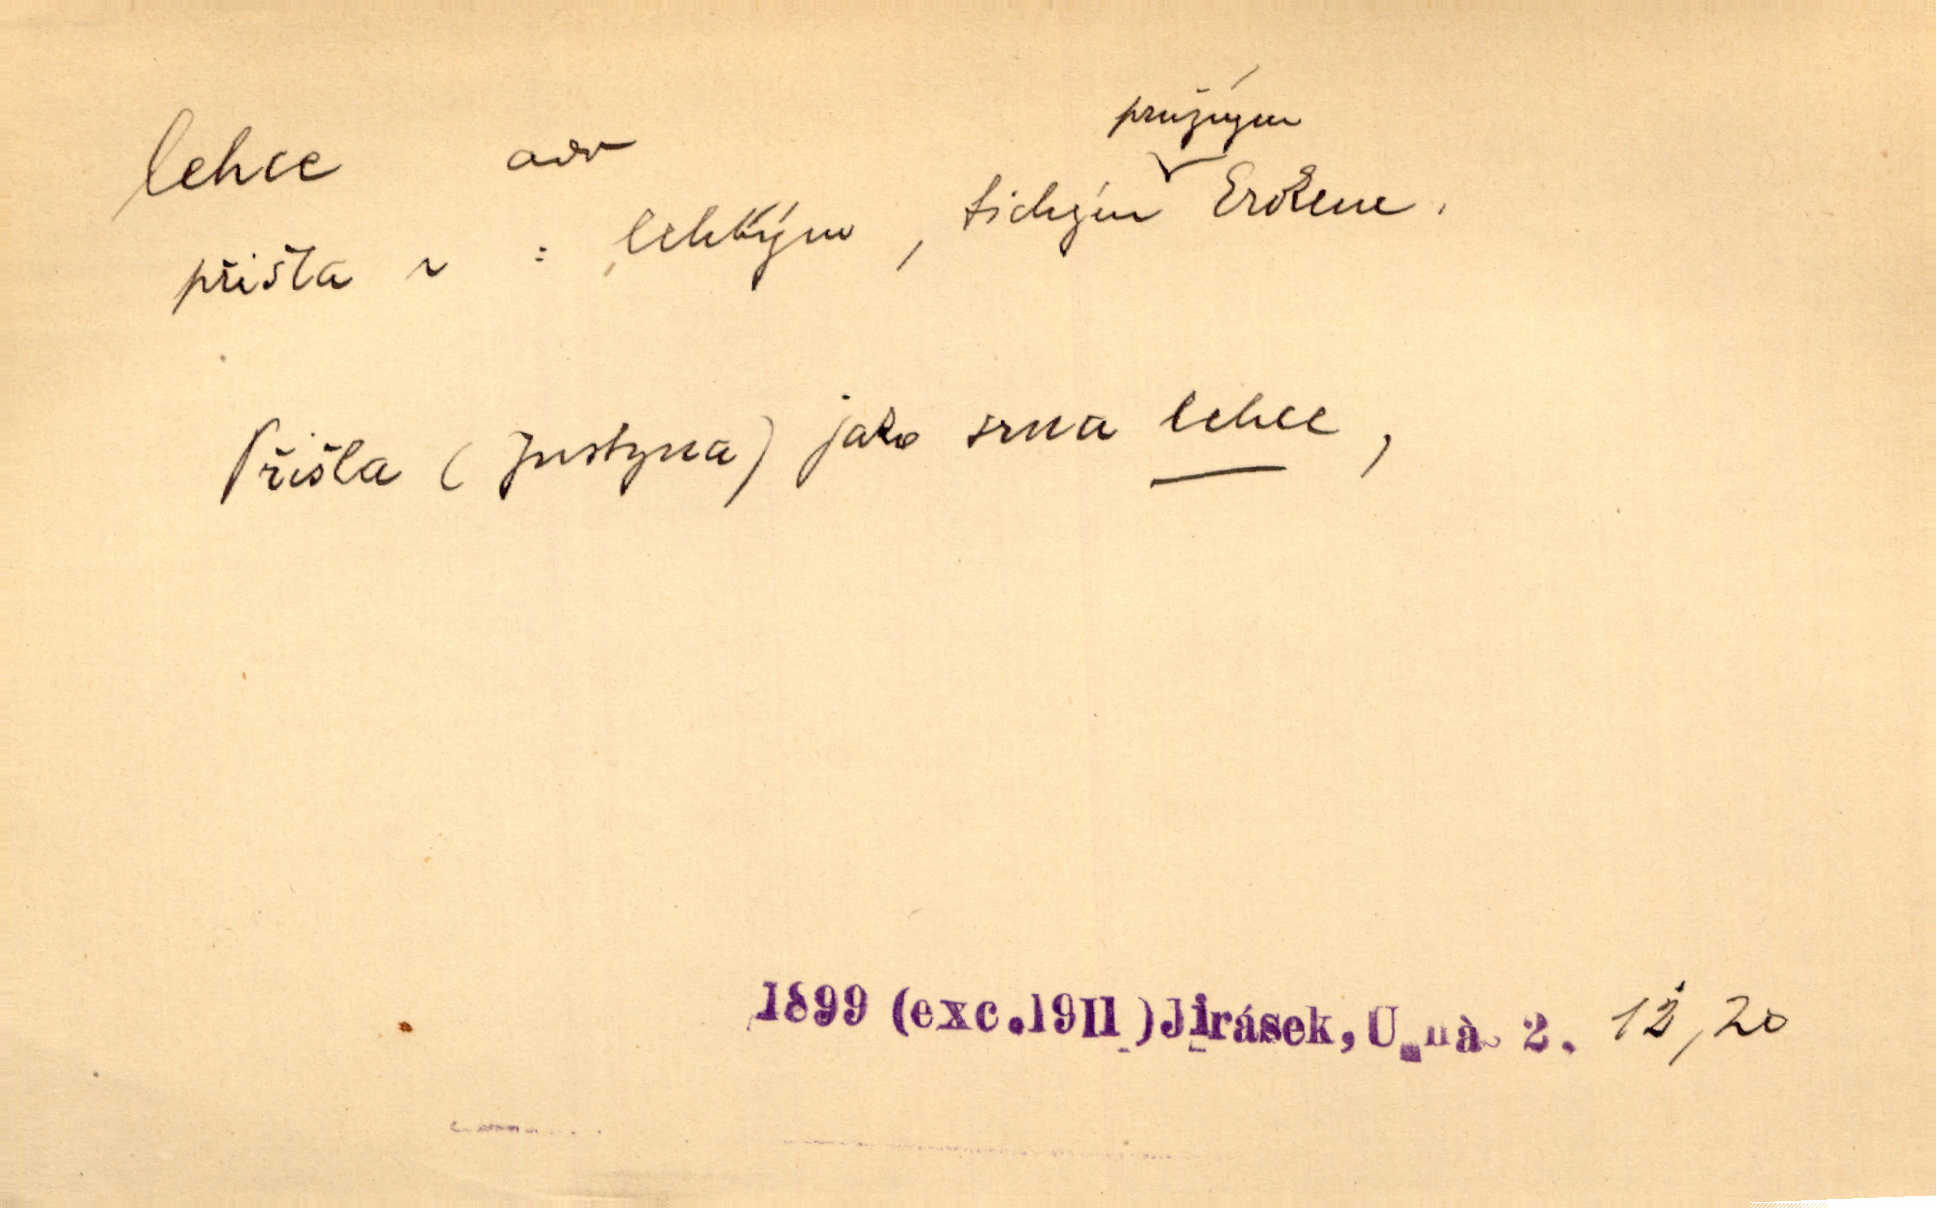 lehce adv
pružným
přišla ~ : lehkým, tichým krokem.
Přišla (Justyna) jako srna lehce,
1899 (exc.1911) Jirásek, U nás 2. 12,20